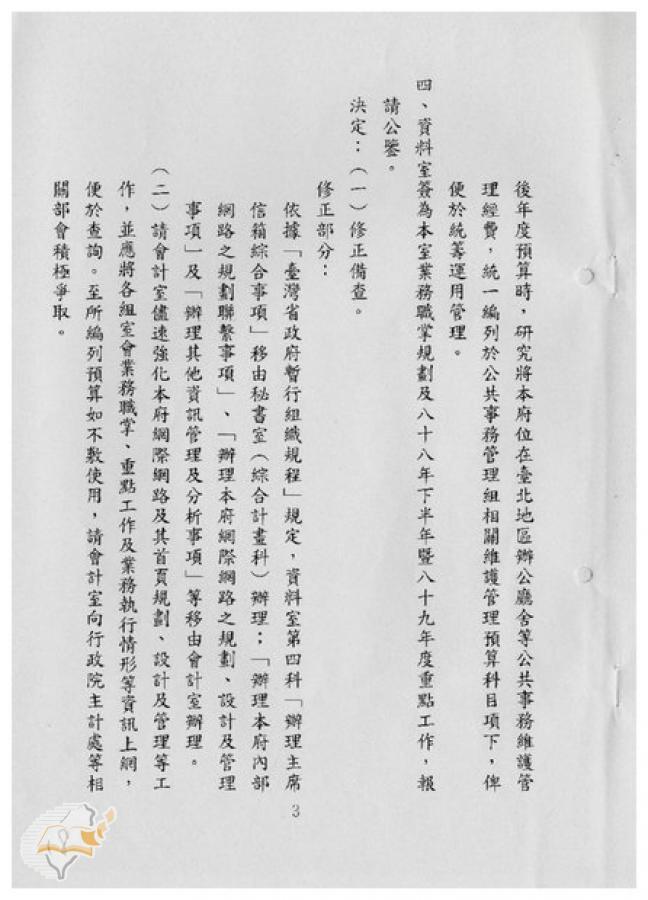 後年度預算時，研究將本府位在臺北地區辦公廳舍等公共事務維護管
理經費，統一編列於公共事務管理組相關維護管理預算科目項下，俾
便於統籌運用管理。
四、資料室簽為本室業務職掌規劃及八十八年下半年暨八十九年度重點工作，報
請公鑒。
決定：（一）修正備查。
修正部分：
依據「臺灣省政府暫行組織規程」規定，資料室第四科「辦理主席
信箱綜合事項」移由秘書室（綜合計畫科）辦理；「辦理本府內部
網路之規劃聯繫事項」、「辦理本府網際網路之規劃、設計及管理
事項」及「辦理其他資訊管理及分析事項」等移由會計室辦理。
（二）請會計室儘速強化本府網際網路及其首頁規劃、設計及管理等工
作，並應將各組室會業務職掌、重點工作及業務執行情形等資訊上網，
便於查詢。至所編列預算如不敷使用，請會計室向行政院主計處等相
關部會積極爭取。
3